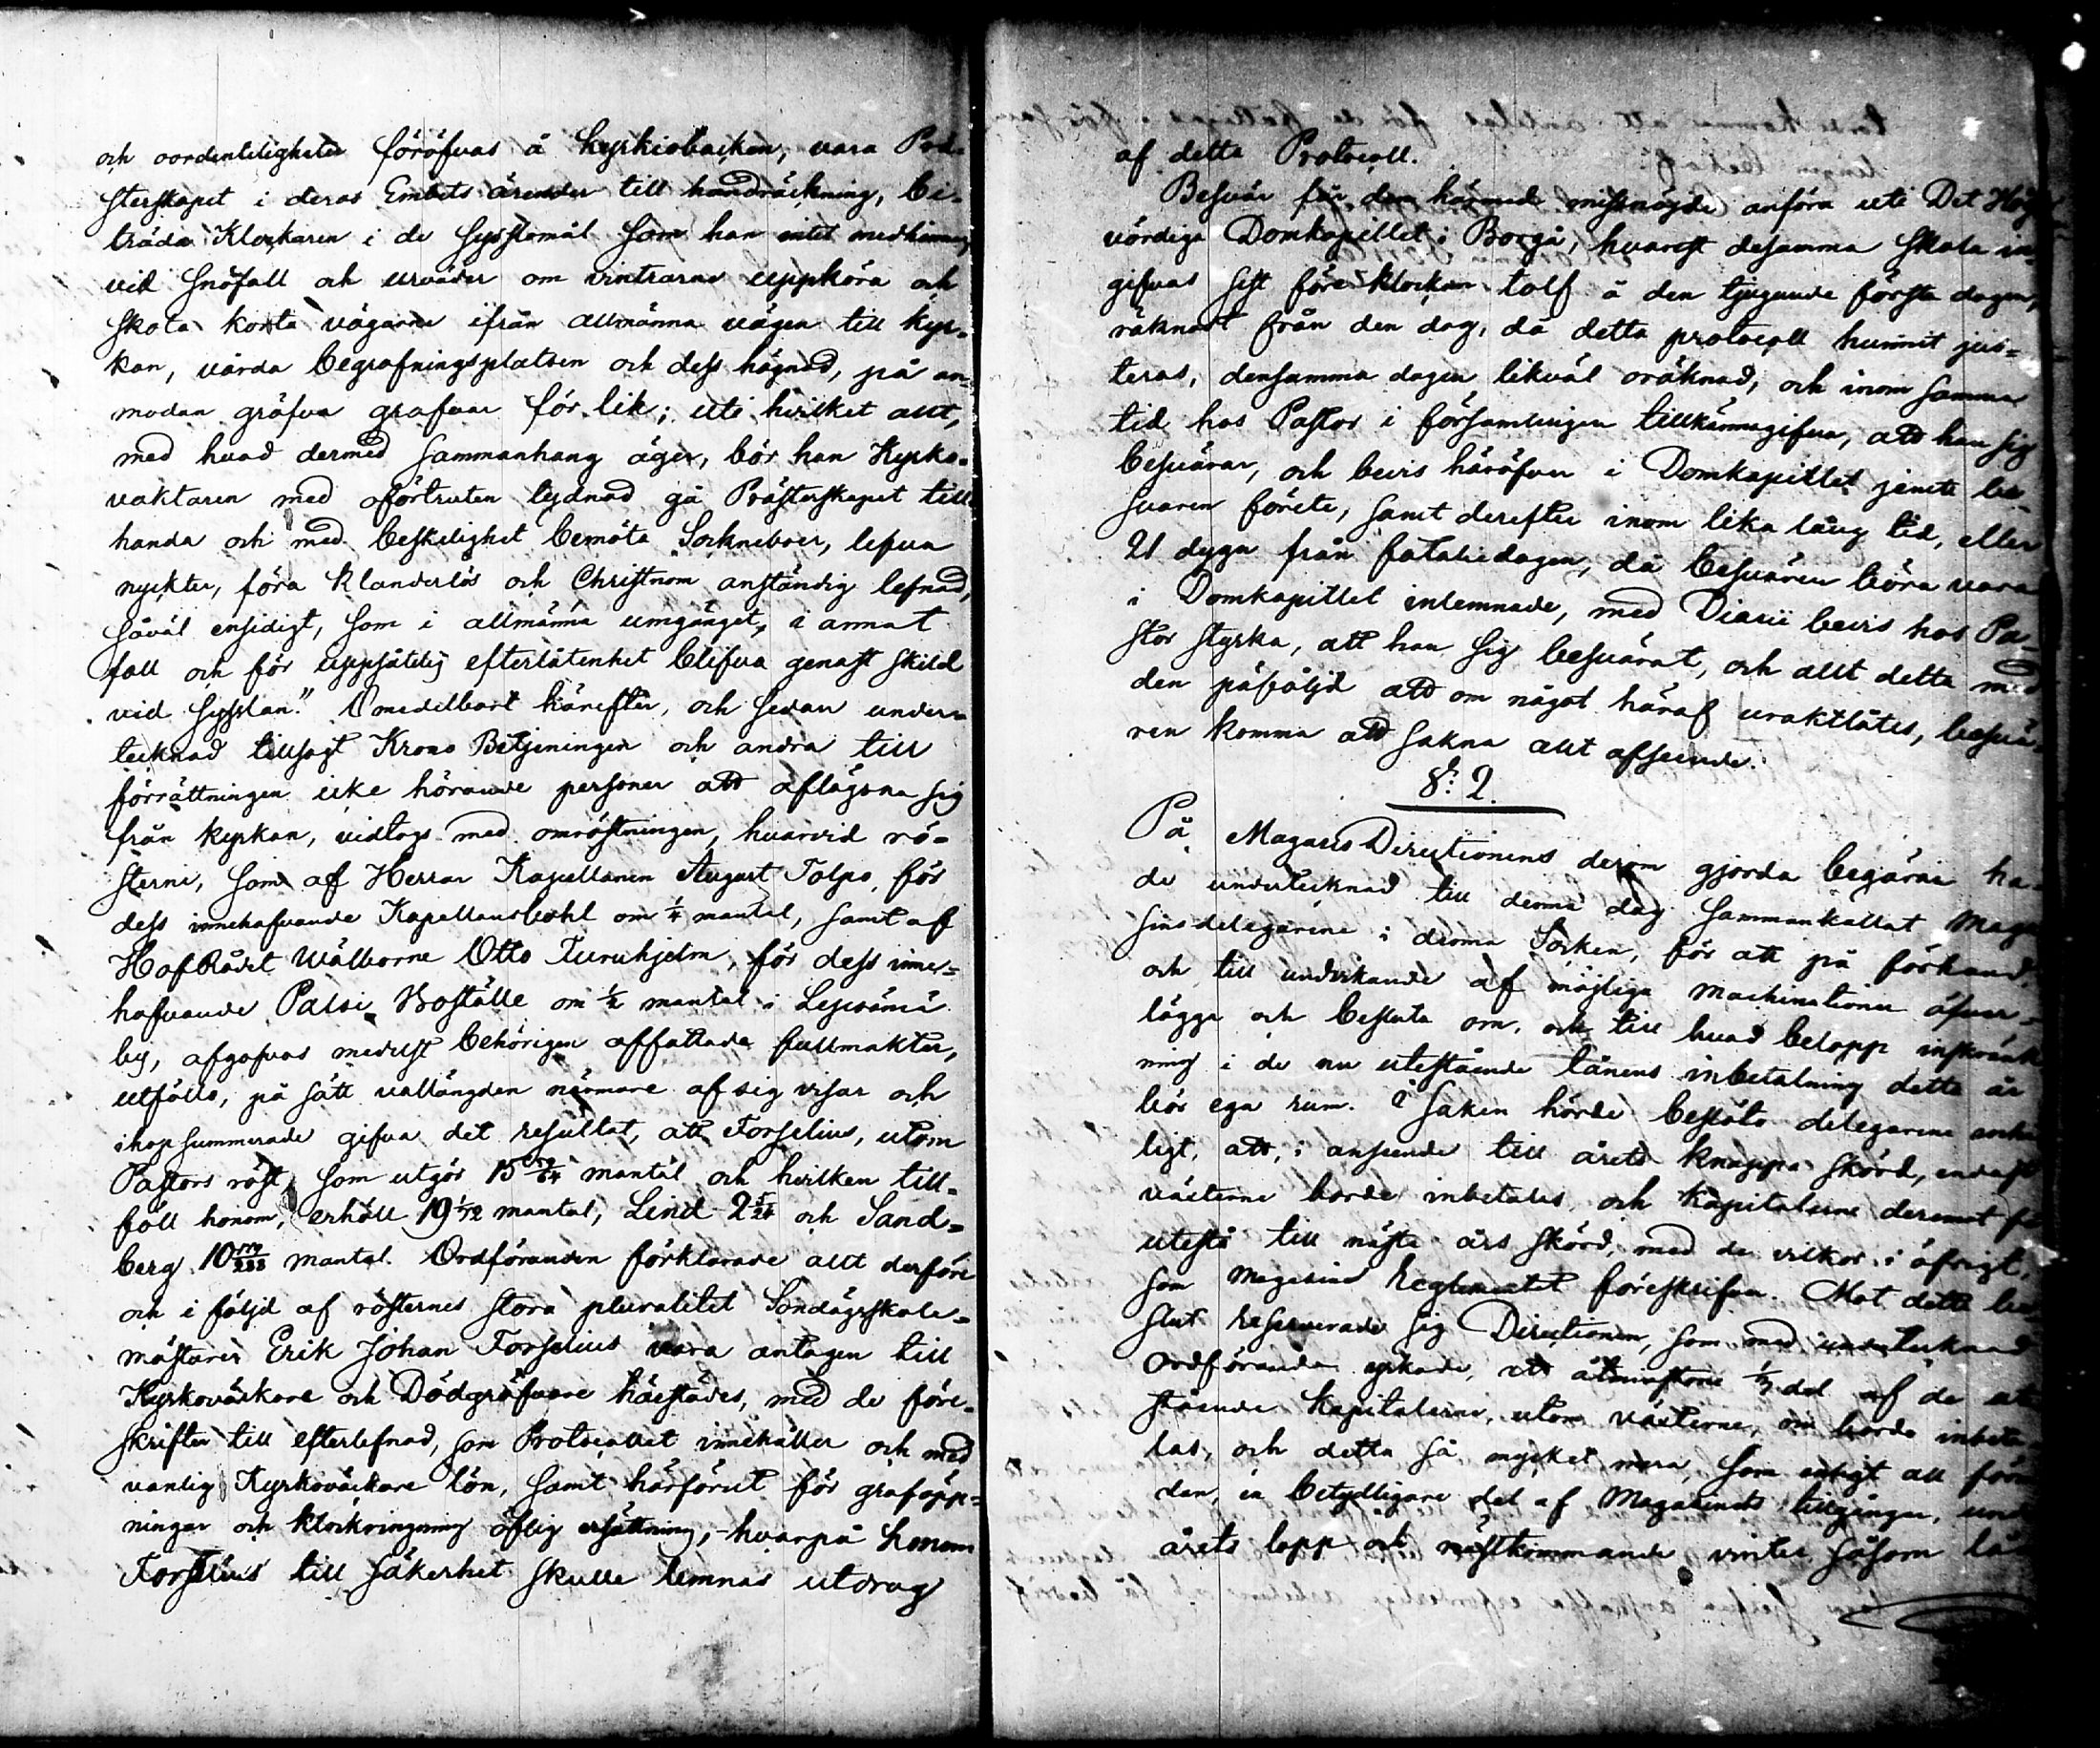 och oordentligheter föröfvas å kyrkiobacken, vara Prä-
sterskapet i deras Embets ärender till handräckning, bi-
träda Klockaren i de sysslomål som han intet medhinner,
vid snöfall och urväder om vintrarne uppköra och
skota korta vägarne ifrån allmänna vägen till kyr-
kan, vårda begrafningsplatsen och dess hägnad, på an-
modan gräfva grafvar för lik; uti hvilket allt,
med hvad dermed sammanhang äger, bör han Kyrko-
vaktaren med oförtruten lydnad gå Prästerskapet till
handa och med beskedlighet bemöta Sockneboer, lefva
nyckter, föra klanderlös och Christnom anständig lefnad,
såväl ensidigt, som i allmänna umgänget, i annat
fall och för uppsåtelig efterlåtenhet blifva genast skild
vid sysslan." Omedelbart härefter, och sedan under-
tecknad tillsagt Krono Betjeningen och andra till
förrättningen icke hörande personer att aflägsna sig
från kyrkan, vidtogs med omröstningen, hvarvid rö-
sterne, som af Herrar Kapellanen August Tolpo, för
dess innehafvande Kapellansbohl om 1/4 mantal, samt af
HofRådet Wälborne Otto Furuhjelm, för dess inne-
hafvande Palsi Boställe om 1/2 mantal i
by, afgofvos medelst behörigen affattade fullmakter,
utföllo, på sätt vallängden närmare af sig visar och
ihopsummerade gifva det resultat, att Forselius, utom
Pastors röst, som utgör 15 mantal och hvilken till-
föll honom, erhöll 19 1/72 mantal, Lind 2 och Sand-
berg 10 mantal. Ordföranden förklarade allt derföre
och i följd af rösternes stora pluralitet Söndagsskole-
mästaren Erik Johan Forselius vara antagen till
Kyrkoväckare och Dödgräfvare härstädes, med de före-
skrifter till efterlefnad, som Protocollet innehåller och med
vanlig Kyrkoväckare lön, samt härförut för graföpp-
ningar och klockringning öflig ersättning, - hvarpå honom
Forselius till säkerhet skulle lemnas utdrag
af detta Protocoll.
Besvär får den härmed missnöjde anföra uti Det Hög-
vördiga Domkapitlet i Borgå, hvarest desamma skola in-
gifvas sist före klockan tolf å den tjugunde första dagen,
räknadt från den dag, då detta protocoll hunnit jus-
teras, densamma dagen likväl oräknad, och inom samma
tid hos Pastor i församlingen tillkännagifva, att han sig
besvärar, och bevis häröfver i Domkapitlet jemte be-
svären förete, samt derefter inom lika lång tid, eller
21 dygn från fataliedagen, då besvären böra vara
i Domkapitlet inlemnade, med Diarii bevis hos Pa-
stor styrka, att han sig besvärat, och allt detta med
den påföljd att om något häraf uraktlåtes, besvä-
ren komma att sakna allt afseende.
§. 2.
På Magasis Directionens derom gjorda begäran ha-
de undertecknad till denna dag sammankallat Maga-
sinsdelegarene i denna Socken, för att på förhand
och till undvikande af möjliga machinationer öfver-
lägga och besluta om, och till hvad belopp inskränk
ning i de nu utestående lånens inbetalning detta år
bör ega rum. I saken hörde beslöto delegarene
ligt, att, i anseende till årets knappa skörd, endast
växterne borde inbetalas och Kapitalerne deremot få
utestå till nästa års skörd, med de vilkor i öfrigt,
som Magasins Reglementet föreskrifver. Mot detta be-
slut reserverade sig Directionen, som med undertecknad
Ordförande yrkade, att åtminstone 1/3 del af de ut-
stående Kapitalerne, utom växterne, borde inbeta-
las, och detta så mycket mera, som enligt all förmo
dan, en betydligare del af Magasinets tillgångar, under
årets lopp och nästkommande vinter såsom lå